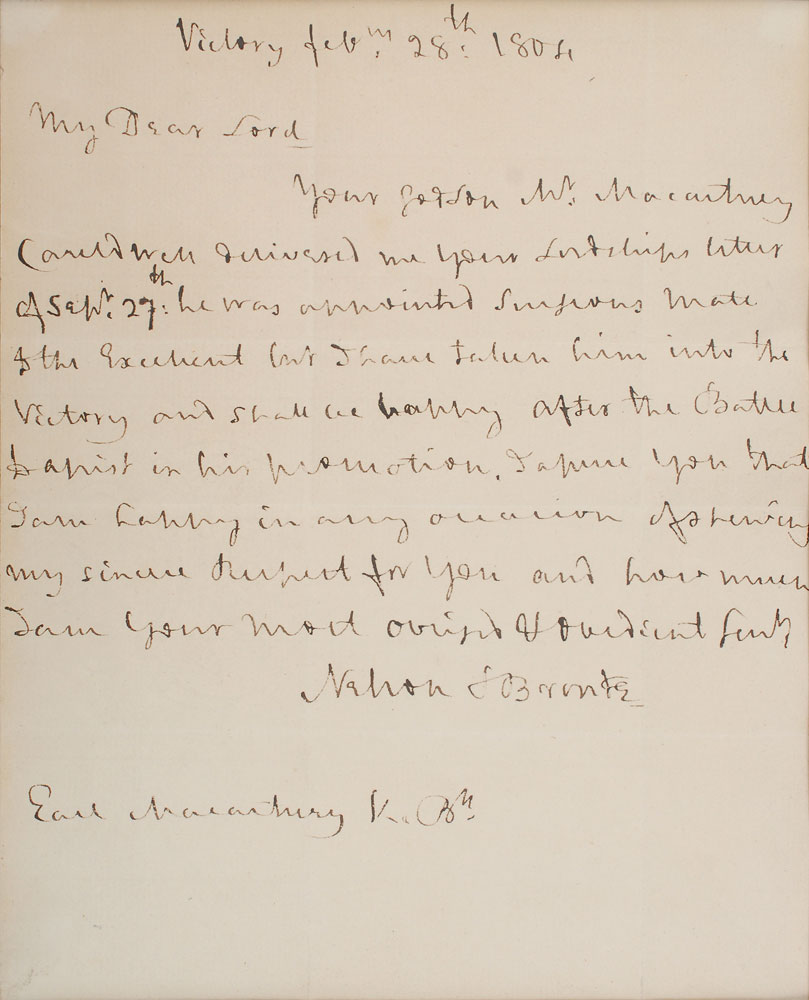 Victory feb.ry 28.th 1804
My Dear Lord
Your Godson Mr. Macartney
Caruldwell delivered me your Lordships letter
of Sept. 27.th he was appointed Surgeons Mate
to the Excellent but I have taken him into the
Victory and shall be happy after the Battle
to assist in his promotion. I assure you that
I am happy in any occasion of shewing
my sincere Respect for You and how much
I am Your Most obliged & obedient Servt
Nelson & Bronte
Earl Macartney K. Bh.